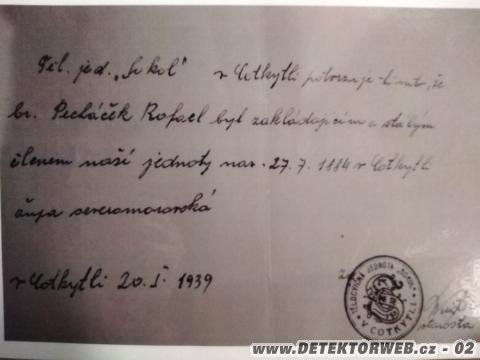 Těl. jed. „Sokol“ v Cotkytli potvrzuje tímto, že
br. Pecháček Rafael byl zakládajícím a stálým
členem naší jednoty nar. 27. 7. 1884 v Cotkytli
župa severomoravská
v Cotkytli 20. I. 1939
TĚLOCVIČNÁ JEDNOTA „SOKOL“ V COTKYTLI
starosta
www.DETEKTORWEB.cz - 02